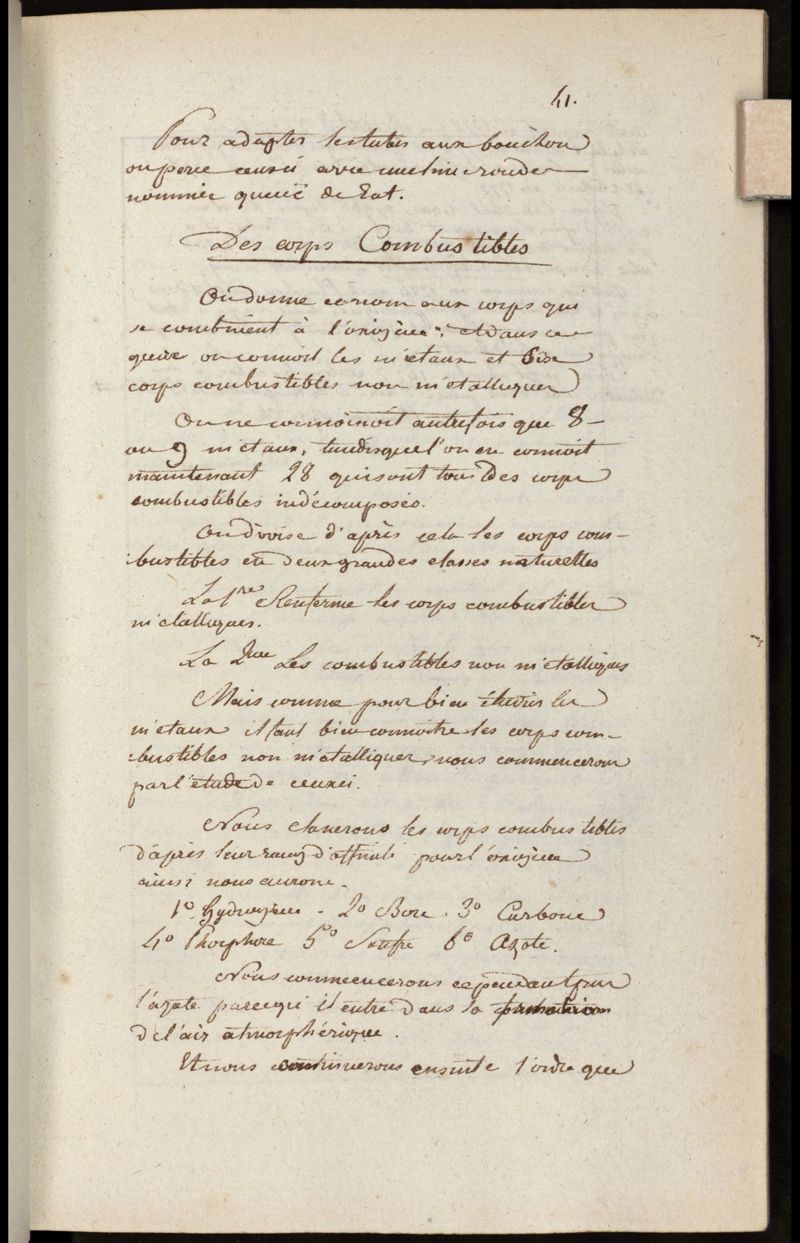 41.
Pour adapter les tubes aux bouchon
on perce ceux ci avec une lime ronde
nommée queue de Rat.
Des corps Combustibles
On donne ce nom aux corps qui
se combinent à l'oxigène ; et dans ce
genre on connoit les métaux et Six
corps combustibles non métalliques
On ne connoissoit autrefois que 8
ou 9 métaux, tandisque l'on en connoit
maintenant 28 qui sont tous Des corps
combustibles indécomposés.
On divise d'après cela les corps com-
:bustibles en deux grandes classes naturelles
La 1re Renferme les corps combustibles
métalliques.
La 2me Les combustibles non métalliques
Mais comme pour bien étudier les
métaux il faut bien connoitre les corps com-
:bustibles non métalliques, nous commencerons
par l'étude De ceux ci.
Nous classerons les corps combustibles
d'après leur rang d'affinité pour l'oxigène
ainsi nous aurons.
1º Hydrogène - 2º Bore . 3º Carbone
4º Phosphore 5º Soufre 6º Azote.
Nous commencerons cependant par
l'azote parcequ'il entre Dans la formation
De l'air atmosphérique.
Et nous continuerons ensuite l'ordre que